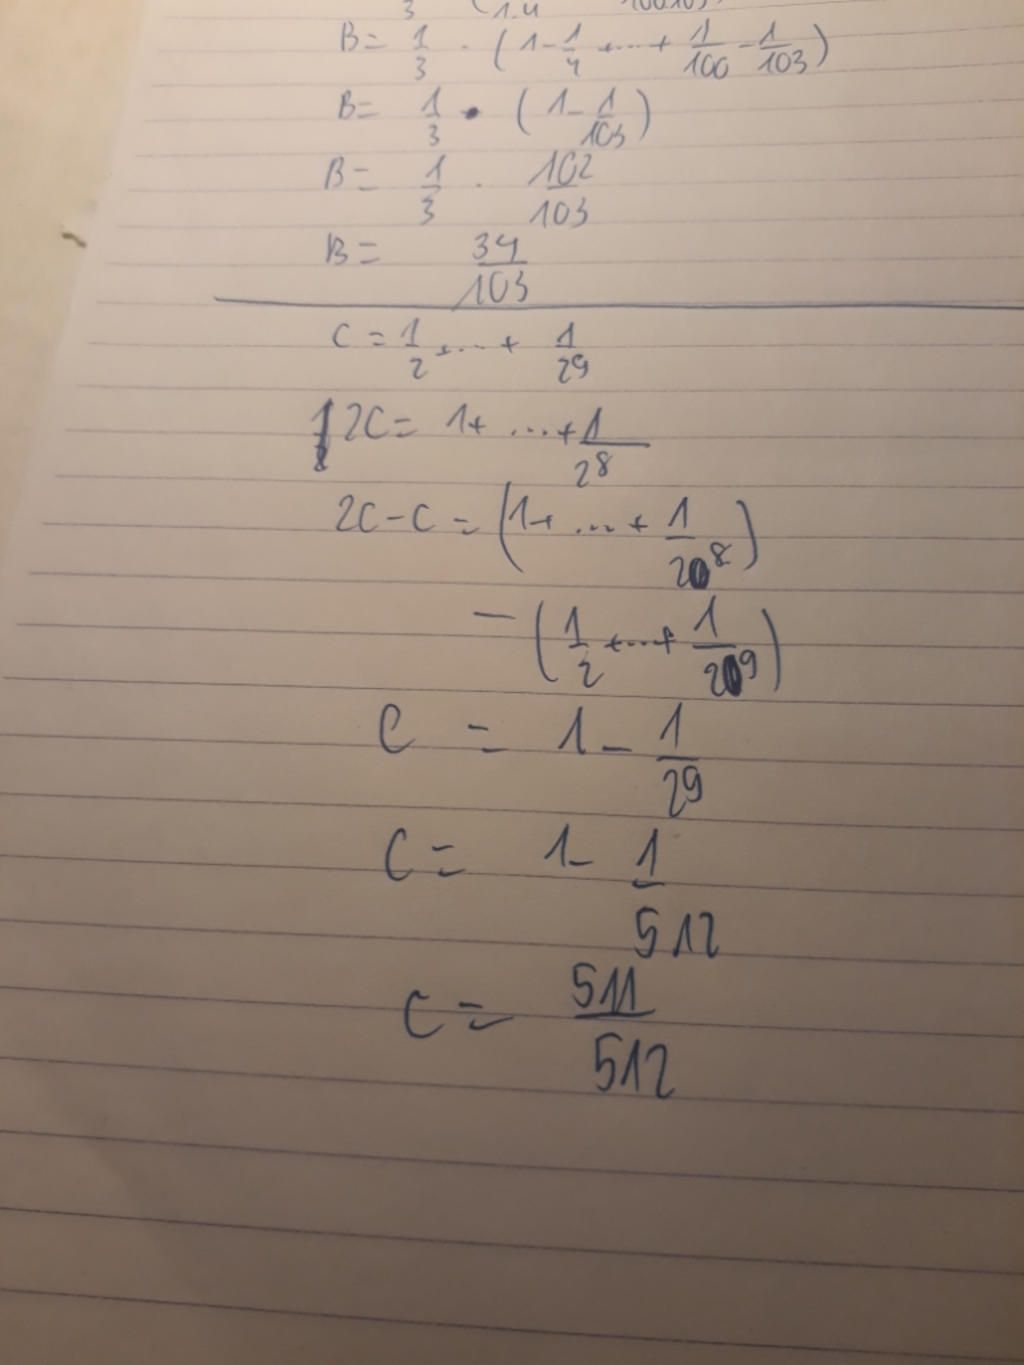 B = 1/3 · (1 - 1/4 + ... + 1/100 - 1/103)
B = 1/3 · (1 - 1/103)
B = 1/3 · 102/103
B = 34/103
C = 1/2 + ... + 1/29
2C = 1 + ... + 1/2^8
2C - C = (1 + ... + 1/2^8)
- (1/2 + ... + 1/2^9)
C = 1 - 1/29
C = 1 - 1/512
C = 511/512